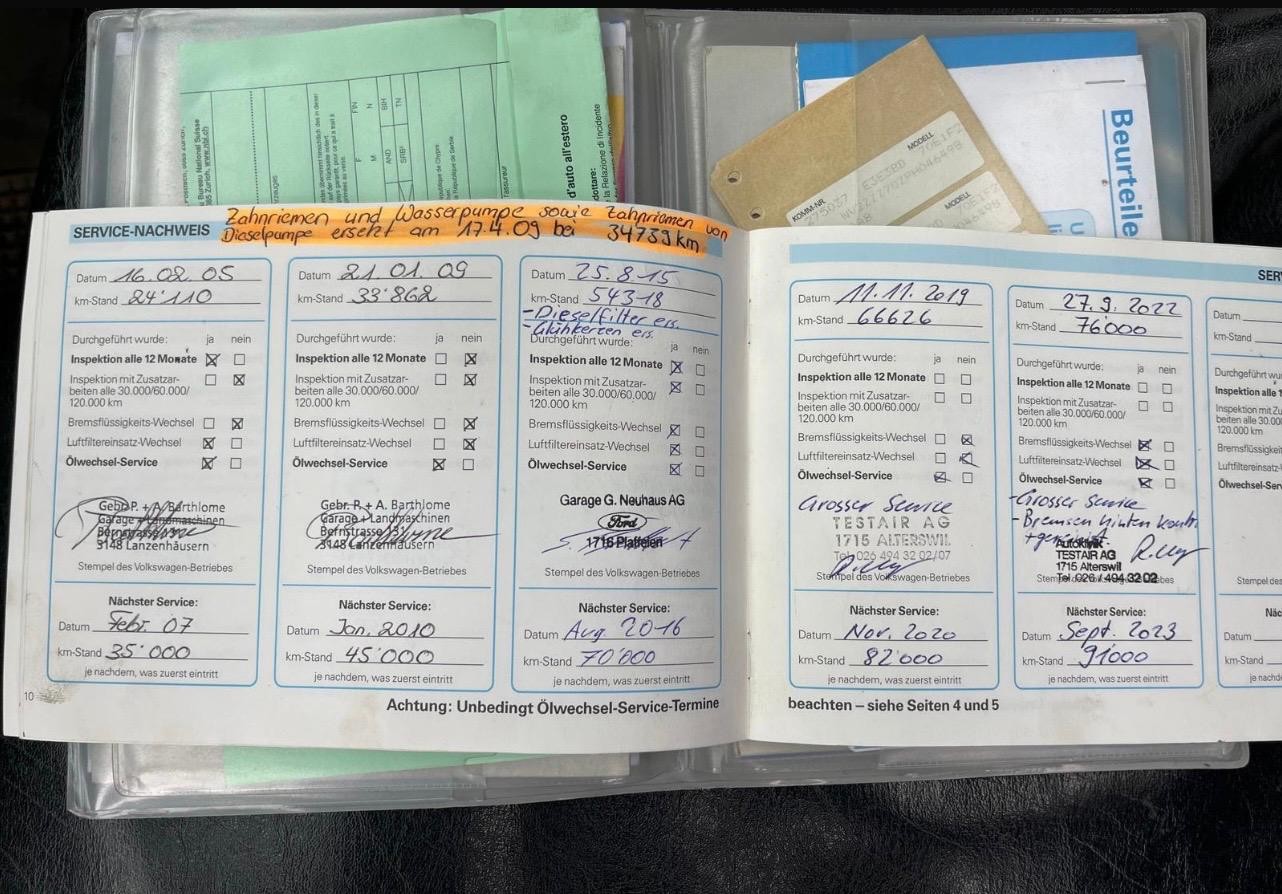 Bureau National Suisse
www.nbi.ch
FIN
BIH
TN
F
N
M
AND
SRB
d'auto all'estero
la Relazione di Incidente
MODELL
KOMM-NR.
Beurteile
SERVICE-NACHWEIS
Zahnriemen und Wasserpumpe sowie Zahnriemen von
Dieselpumpe ersetzt am 17.4.09 bei 34739 km
Datum 16.02.05
km-Stand 24'110
Durchgeführt wurde: ja nein
Inspektion alle 12 Monate
Inspektion mit Zusatzar-
beiten alle 30.000/60.000/
120.000 km
Bremsflüssigkeits-Wechsel
Luftfiltereinsatz-Wechsel
Ölwechsel-Service
Gebr. P. + A. Barthlome
Garage + Landmaschinen
Bernstrasse 131
3148 Lanzenhäusern
Stempel des Volkswagen-Betriebes
Nächster Service:
Datum Febr. 07
km-Stand 35'000
je nachdem, was zuerst eintritt
10
Datum 21.01.09
km-Stand 33'862
Durchgeführt wurde: ja nein
Inspektion alle 12 Monate
Inspektion mit Zusatzar-
beiten alle 30.000/60.000/
120.000 km
Bremsflüssigkeits-Wechsel
Luftfiltereinsatz-Wechsel
Ölwechsel-Service
Gebr. P. + A. Barthlome
Garage + Landmaschinen
Bernstrasse 131
3148 Lanzenhäusern
Stempel des Volkswagen-Betriebes
Nächster Service:
Datum Jan. 2010
km-Stand 45'000
je nachdem, was zuerst eintritt
Datum 25.8-15
km-Stand 54318
-Dieselfilter ers.
-Glühkerzen ers.
Durchgeführt wurde: ja nein
Inspektion alle 12 Monate
Inspektion mit Zusatzar-
beiten alle 30.000/60.000/
120.000 km
Bremsflüssigkeits-Wechsel
Luftfiltereinsatz-Wechsel
Ölwechsel-Service
Garage G. Neuhaus AG
Ford
1716 Plaffeien
Stempel des Volkswagen-Betriebes
Nächster Service:
Datum Aug. 2016
km-Stand 70'000
je nachdem, was zuerst eintritt
Achtung: Unbedingt Ölwechsel-Service-Termine
SER
Datum 11.11.2019
km-Stand 66626
Durchgeführt wurde: ja nein
Inspektion alle 12 Monate
Inspektion mit Zusatzar-
beiten alle 30.000/60.000/
120.000 km
Bremsflüssigkeits-Wechsel
Luftfiltereinsatz-Wechsel
Ölwechsel-Service
Grosser Service
TESTAIR AG
1715 ALTERSWIL
Tel. 026 494 32 02/07
Stempel des Volkswagen-Betriebes
Nächster Service:
Datum Nov. 2020
km-Stand 82'000
je nachdem, was zuerst eintritt
Datum 27.9.2022
km-Stand 76'000
Durchgeführt wurde: ja nein
Inspektion alle 12 Monate
Inspektion mit Zusatzar-
beiten alle 30.000/60.000/
120.000 km
Bremsflüssigkeits-Wechsel
Luftfiltereinsatz-Wechsel
Ölwechsel-Service
-Grosser Service
-Bremsen hinten kontr.
Autoklinik
TESTAIR AG
1715 Alterswil
Tel. 026 / 494 32 02
Nächster Service:
Datum Sept. 2023
km-Stand 91000
je nachdem, was zuerst eintritt
beachten – siehe Seiten 4 und 5
Datum
km-Stand
Durchgeführt wu
Inspektion alle 1
Inspektion mit Zu
beiten alle 30.00
120.000 km
Bremsflüssigkeit
Luftfiltereinsatz-
Ölwechsel-Servi
Stempel des
Nä
Datum
km-Stand
je nachd